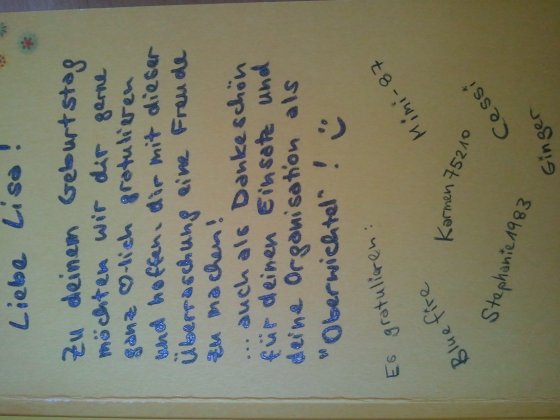 Liebe Lisa!
Zu deinem Geburtstag
möchten wir dir gerne
ganz ♡-lich gratulieren
und hoffen, dir mit dieser
Überraschung eine Freude
zu machen!
... auch als Dankeschön
für deinen Einsatz und
deine Organisation als
"Oberwichtel"! :)
Es gratulieren:
Mimi-87
Bluefire
Karmen75210
Cessi
Stephanie1983
Ginger